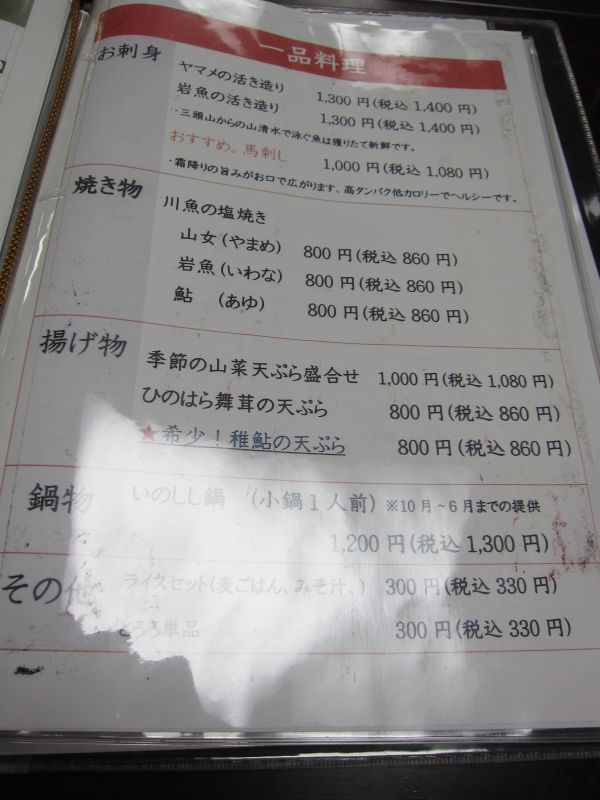 一品料理
お刺身
ヤマメの活き造り 1,300円(税込 1,400円)
岩魚の活き造り 1,300円(税込 1,400円)
・三頭山からの山清水で泳ぐ魚は獲りたて新鮮です。
おすすめ。馬刺し 1,000円(税込 1,080円)
・霜降りの旨みがお口で広がります、高タンパク低カロリーでヘルシーです。
焼き物
川魚の塩焼き
山女(やまめ) 800円(税込 860円)
岩魚(いわな) 800円(税込 860円)
鮎 (あゆ) 800円(税込 860円)
揚げ物
季節の山菜天ぷら盛合せ 1,000円(税込 1,080円)
ひのはら舞茸の天ぷら 800円(税込 860円)
★希少!稚鮎の天ぷら 800円(税込 860円)
鍋物
いのしし鍋 (小鍋1人前) ※10月~6月までの提供
1,200円(税込 1,300円)
その他
ライスセット(麦ごはん、みそ汁、) 300円(税込 330円)
とろろ単品 300円(税込 330円)